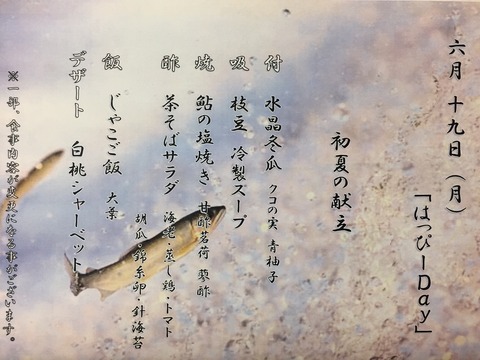 六月 十九日 (月)
「はっぴーDay」
初夏の献立
付 水晶冬瓜 クコの実 青柚子
吸 枝豆 冷製スープ
焼 鮎の塩焼き 甘酢茗荷 蓼酢
酢 茶そばサラダ 海老・蒸し鶏・トマト
胡瓜・錦糸卵・針海苔
飯 じゃこご飯 大葉
デザート 白桃シャーベット
※一部、食事内容が変更になる事がございます。